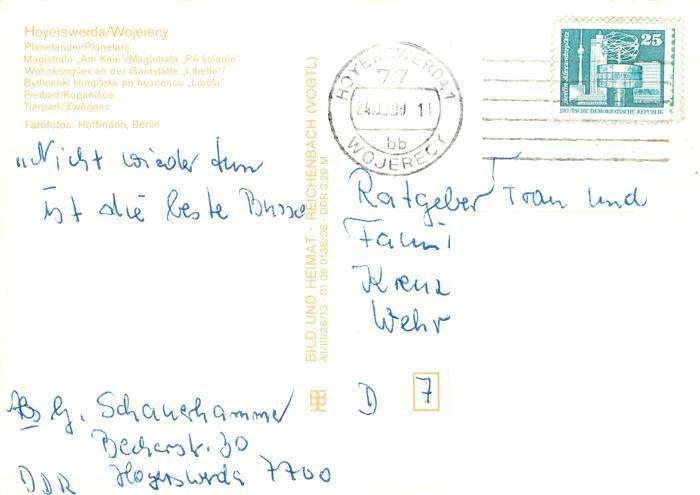 Hoyerswerda/Wojerecy
Planetarium/Planetarij
Magistrale „Am Knie“/Magistrala „Při kolenje“
Wohnkomplex an der Gaststätte „Libelle“/
Bydlenski kompleks při hosćencu „Libela“
Freibad/Kupanišćo
Tierpark/Zwěrjenc
Farbfotos: Hoffmann, Berlin
HOYERSWERDA 1
77
bb
WOJERECY
25
Berlin, Alexanderplatz
DEUTSCHE DEMOKRATISCHE REPUBLIK
„Nicht wieder tun
ist die beste Busse
BILD UND HEIMAT · REICHENBACH (VOGTL)
A1/III/26/13 · 01 06 0138/08 · DDR 0,20 M
Ratgeber Frau und
Fami
Kreuz
Wehr
D 7
Abs G. Schauerhammer
Becherstr. 30
DDR Hoyerswerda 7700